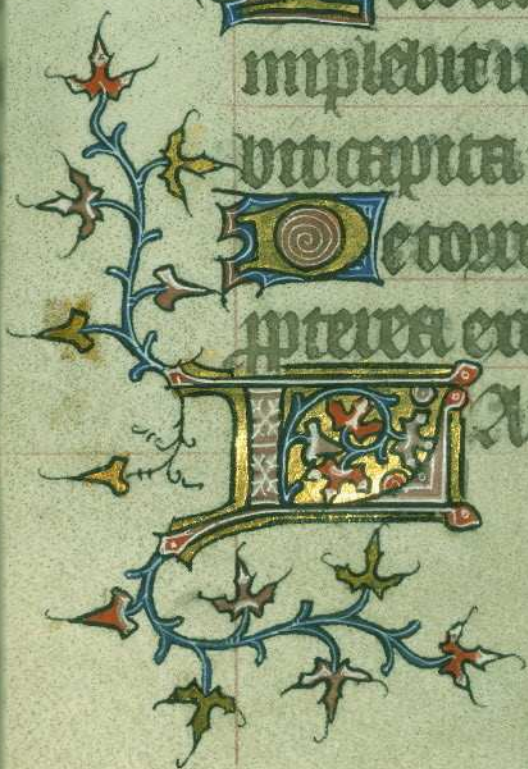 implebit
bit capita
De torre
ppterea ex
LA